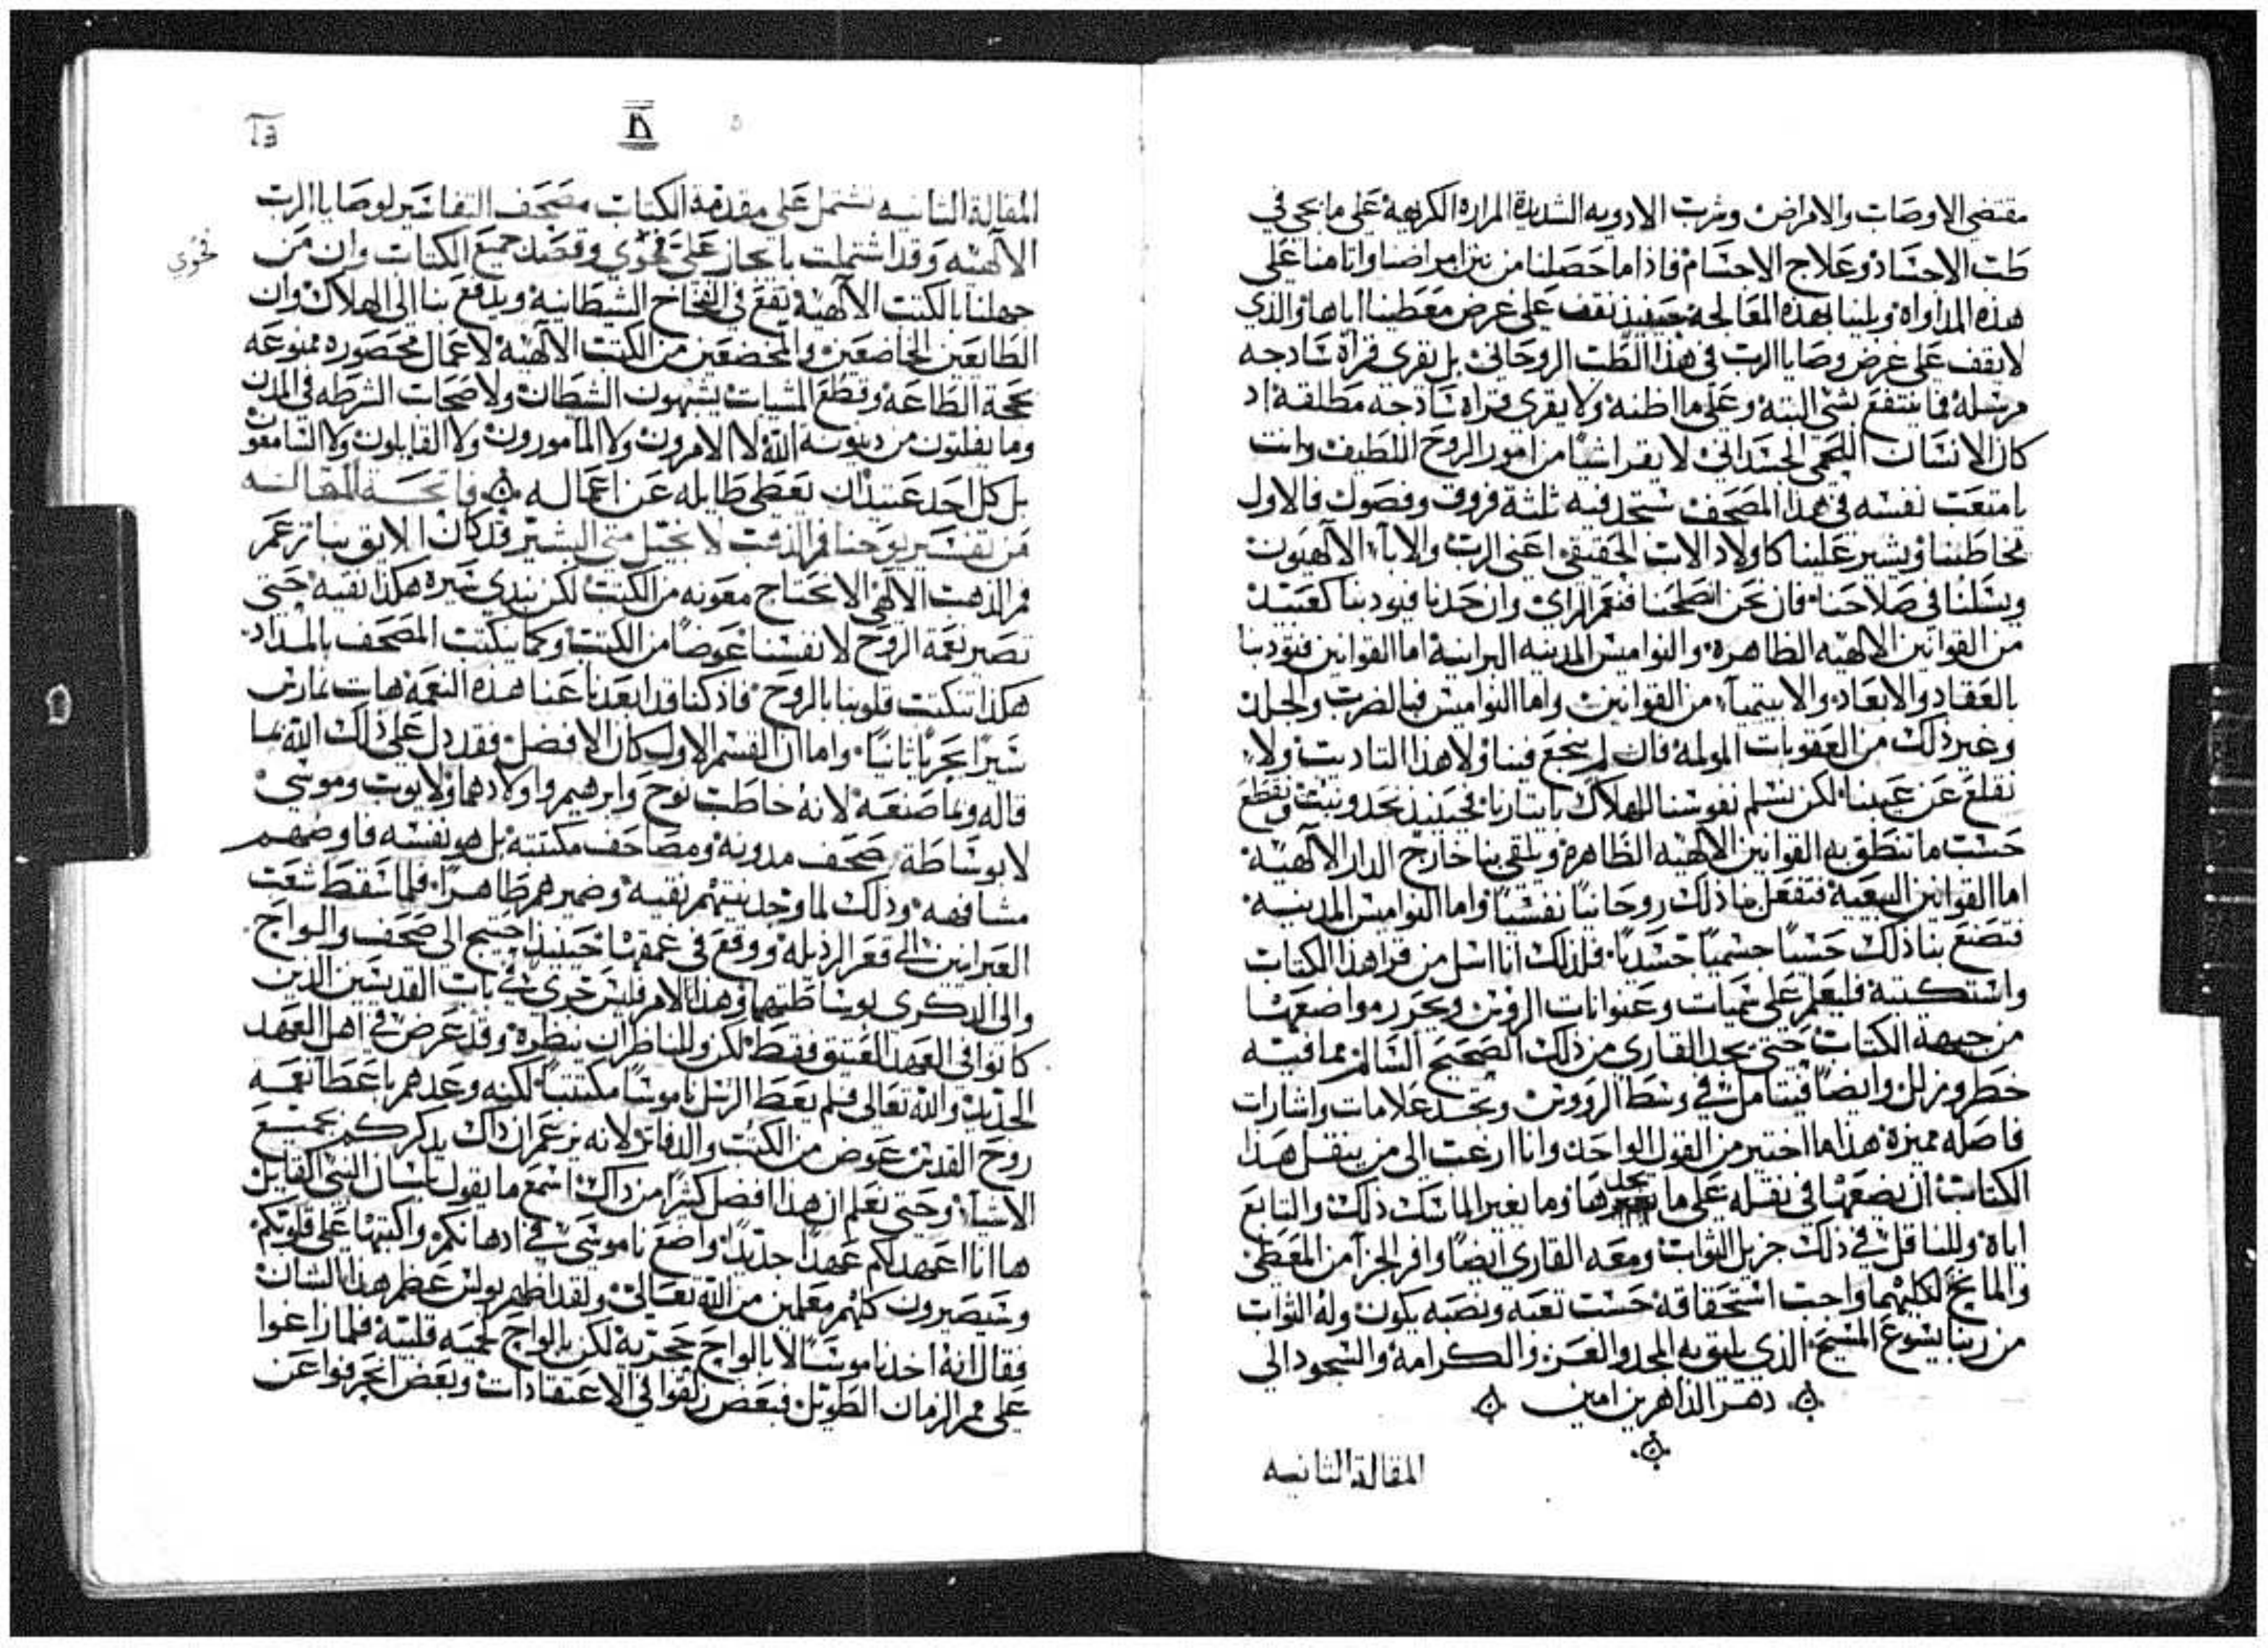 مقتضي الاوصاب والامراض وشرب الادويه الشديدة المراره الكريهة على ما يجي في
طب الاجساد وعلاج الاجسام فاذا ما حصلنا من بين امراضنا وانامنا على
هذه المداواه وبلينا بهذه المعالجه حينيذ نقف على غرض معطينا اياها والذي
لا يقف على غرض وصايا الرب في هذا الطب الروحاني بل يقرى قراة سادجه
مرسله فما ينتفع بشي البتة وعلى ما اظنه ولا يقري قراه سادجه مطلقة اد
كان الانسان اللحمي الجسداني لا يقرا شياً من امور الروح اللطيف وانت
يا متعب نفسه في هذا المصحف ستجد فيه ثلثة فروق وفصول فالاول
يخاطبنا ويشير علينا كاولاد الاب الحقيقي اعني الرب والابآء الالهيون
ويسلنا في صلاحنا فان نحن انصلحنا فنعم الراي وان حدنا فيودبنا كعبيد
من القوانين الالهيه الظاهره والنواميس المدينيه البرانية اما القوانين فتودبنا
بالعقاد والابعاد والابيتميآء من القوانين واما النواميس فبالضرب والجلد
وغير ذلك من العقوبات المولمة فان لم ينجع فينا ولا هذا التاديب ولا
نقلع عن عيبنا لكن نسلم نفوسنا للهلاك بايتارنا فحينيذ نحد ونبت ونقطع
حسب ما تنطق به القوانين الالهيه الظاهرة ويلقى بنا خارج الدار الالآهية
اما القوانين البيعية فتفعل بنا ذلك روحانياً نفسياً واما النواميس المدينية
فتصنع بنا ذلك حسياً جسمياً جسدياً فلذلك انا اسل من قرا هذا الكتاب
واستكتبه فليعلم على سميات وعنوانات الروس ويحرر مواضعها
من جيهة الكتاب حتي يجد القاري من ذلك الصحيح السالم مما فيه
خطر وزلل وايضاً فيتامل في وسط الرووس وتجد علامات واشارات
فاصله مميزة هذا ما اختير من القول الواحد وانا ارغب الى من ينقل هذا
الكتاب ان يضعها في نقله على ما يجدها وما يغير الماسك ذلك والتابع
اياه وللناقل في ذلك جزيل الثواب ومعه القاري ايضاً وافر الجزآ من المعطي
والمانح لكليهما واجب استحقاقه حسب تعبه ونصبه يكون وله الثواب
من ربنا يسوع المسيح الذي يليق به المجد والعز والكرامة والسجود الى
دهر الداهرين امين
المقالة الثانيه
المقالة الثانيه تشتمل على مقدمة الكتاب مصحف التفاسير لوصايا الرب
الالهيه وقد اشتملت بايجاز على فحوي وقصد جميع الكتاب وان من
فحوي
جهلنا بالكتب الالآهية نقع في الفخاخ الشيطانية ويدفع بنا الى الهلاك وان
الطايعين الخاضعين والمخضعين من الكتب الالآهية لاعمال محصوره ممنوعه
بحجة الطاعه وقطع المشيات يشبهون الشطان ولاصحاب الشرطه في المدن
وما يفلتون من دينونة الله لا الامرون ولا المامورون ولا القابلون ولا السامعون
بل كل احد عتيدان يعطى طايله عن اعماله فاتحة المقاله
من تفسير يوحنا فم الذهب لانجيل متى البشير قد كان الايق بنا
فم الذهب الالآهي الا نحتاج معونه من الكتب لكن نبدي سيره هكذا نقيه حتى
تصير نعمة الروح لانفسنا عوضاً من الكتب وكما يكتب المصحف بالمداد
هكذا تكتب قلوبنا بالروح فاذ كنا قد ابعدنا عنا هذه النعمة هات نمارس
سيراً يجر بنا ثانياً واما ان القسم الاول كان الافضل فقد دل على ذلك الله بما
قاله وبما صنعه لانه خاطب نوح وابرهيم واولادهما ولايوب وموسي
لا بوساطة صحف مدونة ومصاحف مكتتبه بل هو نفسه فاوضهم
مشافهه وذلك لما وجد نيتهم نقيه وضميرهم طاهراً فلما سقط شعب
العبرانيين الى قعر الرذيله ووقع في عمقها حينيذ احتيج الى صحف والواح
والى الدكرى بوساطتهما وهذا الامر فليس جرى في باب القديسين الذين
كانوا في العهد العتيق فقط لكن وللناظران ينظره وقد عرض في اهل العهد
الجديد والله تعالى فلم يعط الرسل ناموساً مكتتباً لكنه وعدهم باعطا نعمه
روح القدس عوض من الكتب والدفاتر لانه يزعم ان ذاك يدكركم بجميع
الاشياء وحتى تعلم ان هذا افضل كثيراً من ذاك اسمع ما يقول بلسان النبي القايل
ها انا اعهد لكم عهداً جديداً واضع ناموسي في ادهانكم واكتبها على قلوبكم
وسيصيرون كلهم معلمين من الله تعالى ولقد اظهر بولس عظم هذا الشان
فقال انه اخذ ناموساً لا بالواح حجرية لكن بالواح لحميه قلبية فلما زاغوا
على ممر الزمان الطويل فبعض زلقوا في الاعتقادات وبعض انجرفوا عن